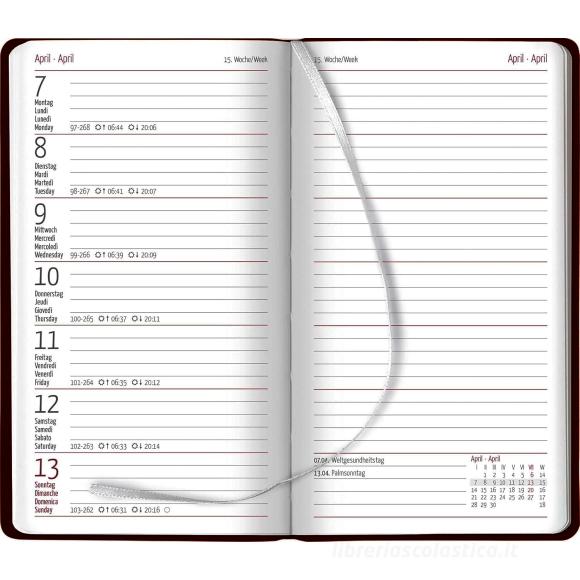 April · April 15. Woche/Week
7
Montag
Lundi
Lunedì
Monday 97-268 06:44 20:06
8
Dienstag
Mardi
Martedì
Tuesday 98-267 06:41 20:07
9
Mittwoch
Mercredi
Mercoledì
Wednesday 99-266 06:39 20:09
10
Donnerstag
Jeudi
Giovedì
Thursday 100-265 06:37 20:11
11
Freitag
Vendredi
Venerdì
Friday 101-264 06:35 20:12
12
Samstag
Samedi
Sabato
Saturday 102-263 06:33 20:14
13
Sonntag
Dimanche
Domenica
Sunday 103-262 06:31 20:16
15. Woche/Week April · April
07.04. Weltgesundheitstag
13.04. Palmsonntag
April · April
I II III IV V VI VII W
1 2 3 4 5 6 14
7 8 9 10 11 12 13 15
14 15 16 17 18 19 20 16
21 22 23 24 25 26 27 17
28 29 30 18
libreriascolastica.it